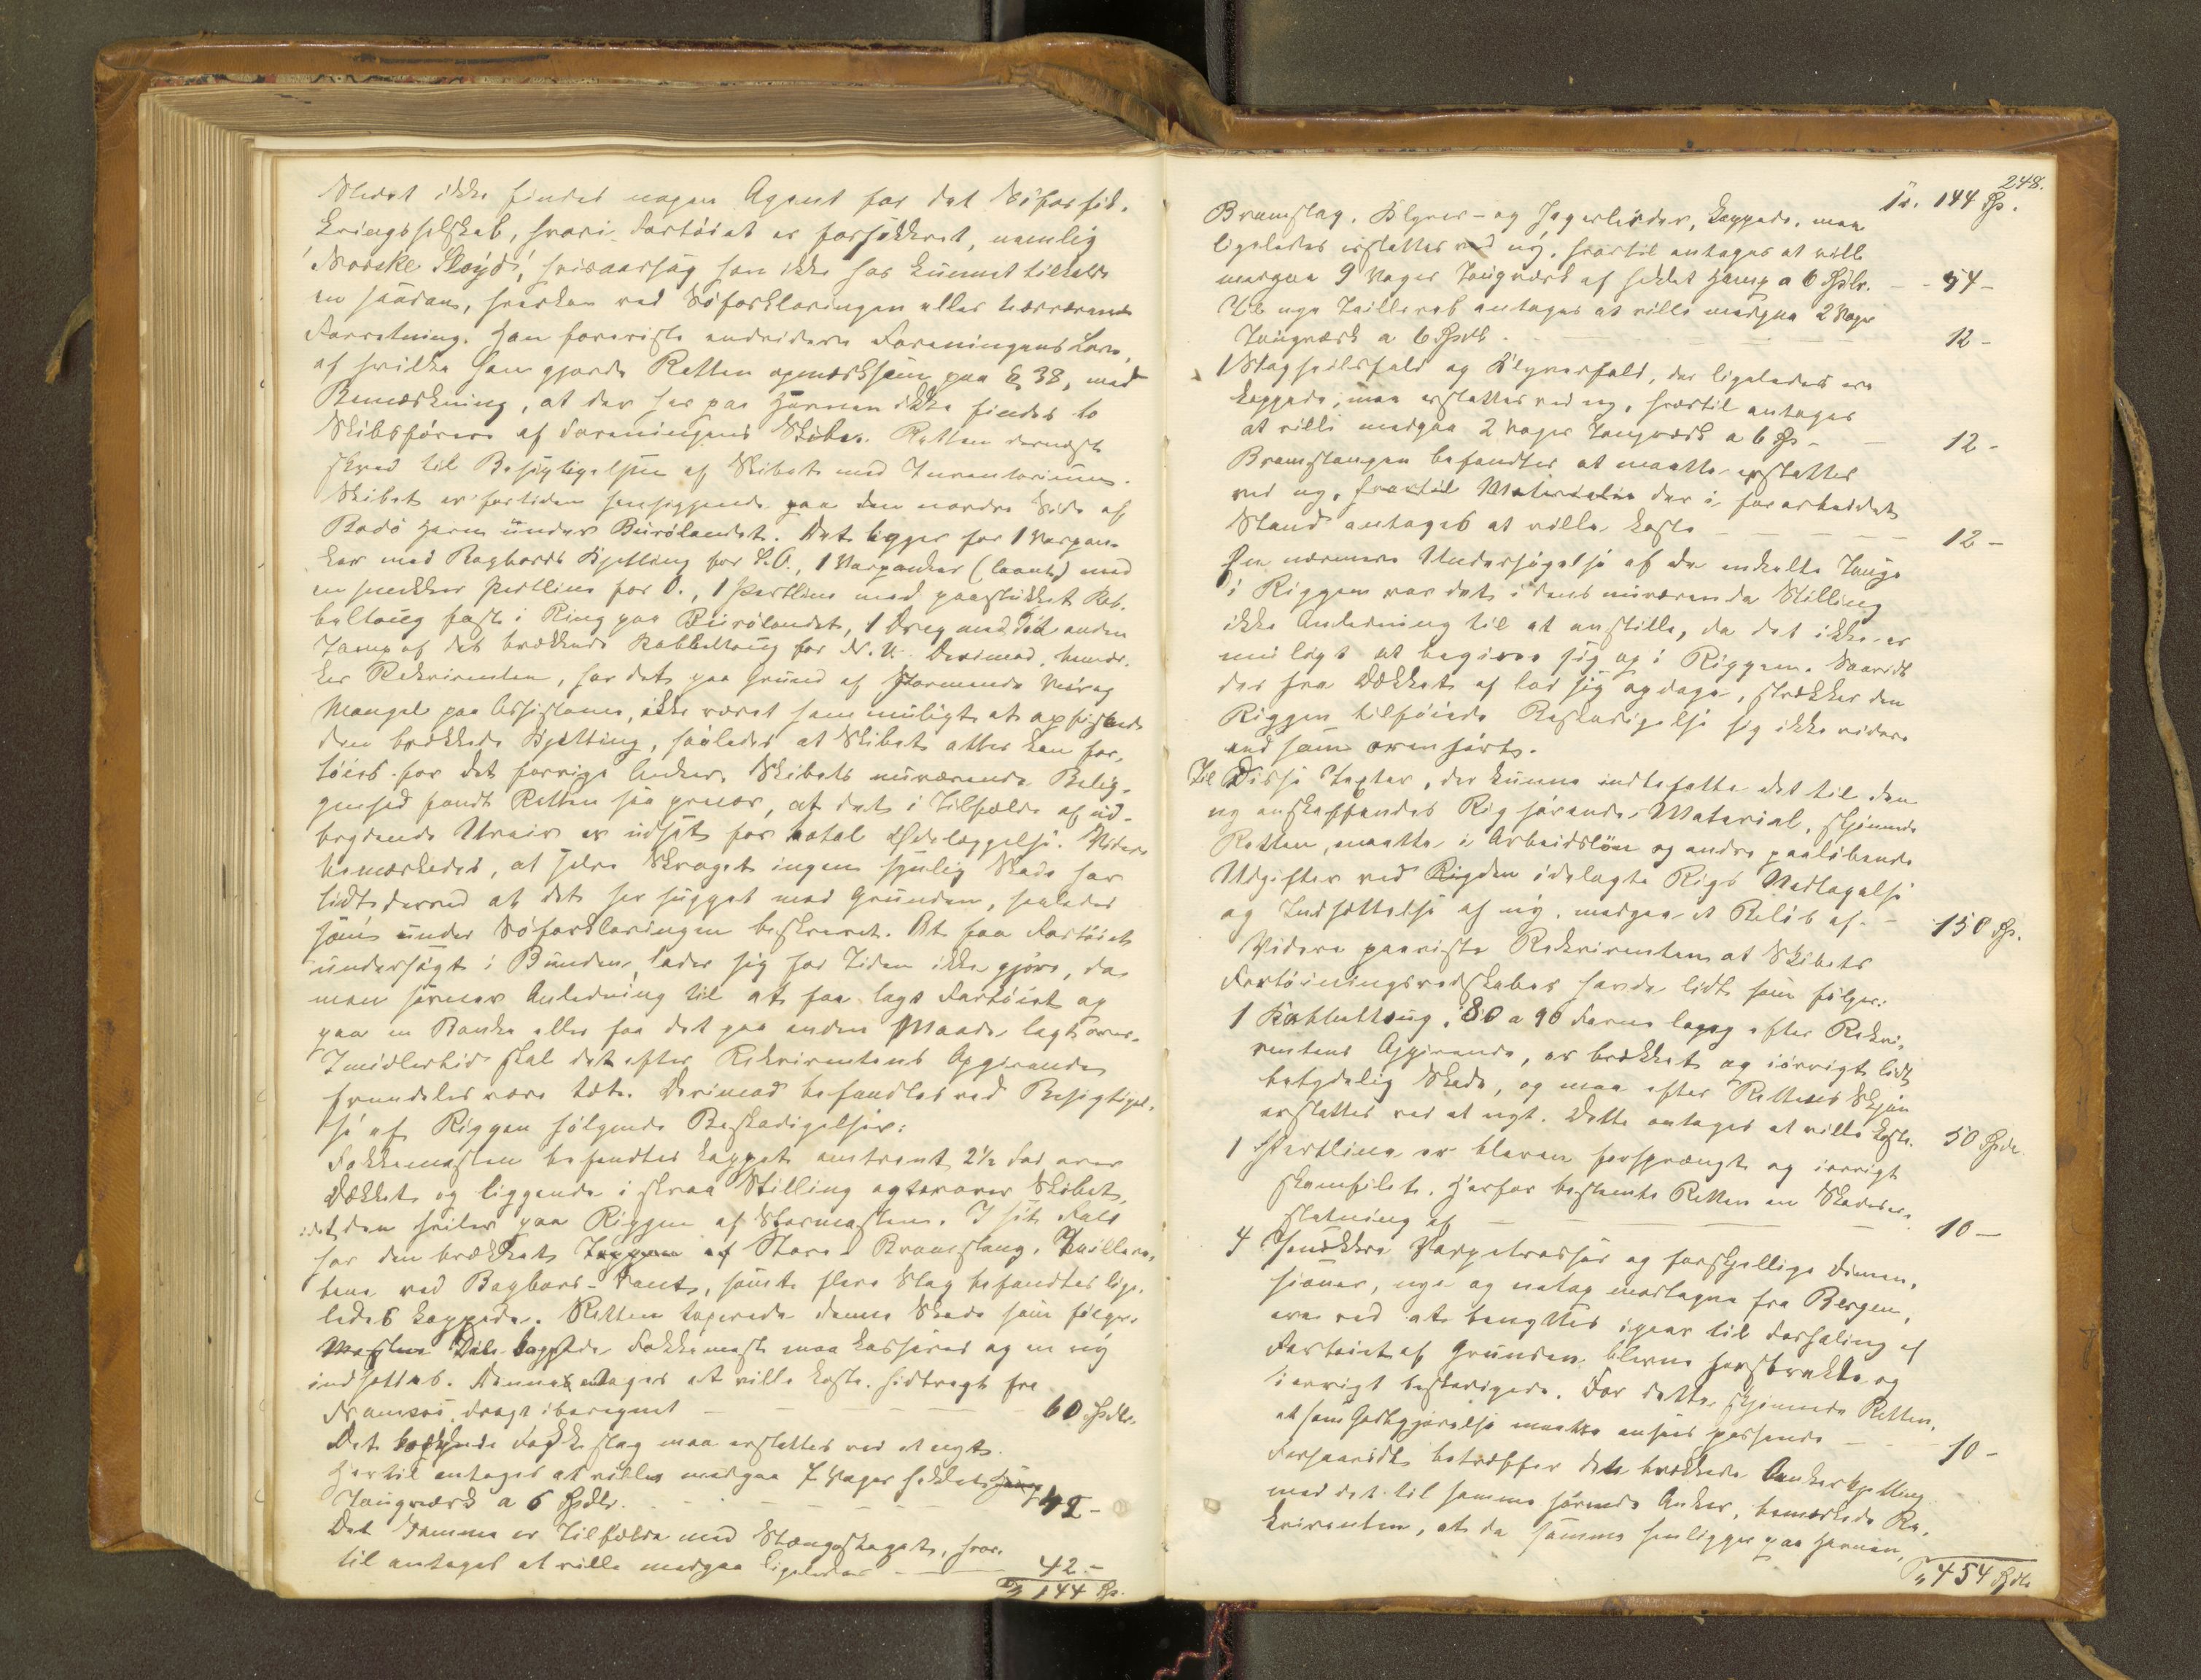 Stedet ikke findes nogen Agent for det Søforsik-
kringsselskab, hvori Fartøiet er forsikkret, nemlig
"Norske Lloyd", hvisaarsag han ikke har kunnet tilkalde
en saadan, hverken ved Søforklaringen eller nærværende
Forretning. Han foreviste endvidere Foreningens Love,
af hvilke han gjorde Retten opmærksom paa § 38, med
Bemærkning, at der her paa Havnen ikke findes to
Skibsførere af Foreningens Skibe. Retten dernæst
skred til Besigtigelsen af Skibet med Inventarium.
Skibet er fortiden henliggende paa den nordre Side af
Bodø Havn under Burølandet. Det ligger for 1 Varpan-
ker med Bagbords Kjetting for S.O., 1 Varpanker (laant) med
en svekker Pertline for O., 1 Pertline med paastukket Ka-
beltoug fast i Ring paa Burølandet, 1 Dreg med den anden
Tamp af det brækkede Kabbeltoug for N.V. Derimod, bemær-
ker Rekvirenten, har det paa Grund af stormende Veir og
Mangel paa Assistance, ikke været ham muligt at opfiske
den brækkede Kjetting, saaledes at Skibet atter kan for-
tøies for det forrige Anker. Skibets nuværende Belig-
genhed fandt Retten saa prekær, at det i Tilfælde af ud-
brydende Uveir er udsat for total Ødelæggelse. Videre
bemærkedes, at selve Skroget ingen synlig Skade har
lidt derved at det har hugget mod Grunden, saaledes
som under Søforklaringen beskrevet. At faa Fartøiet
undersøgt i Bunden, lader sig for Tiden ikke gjøre, da
man savner Anledning til at faa lagt Fartøiet op
paa en Banke eller faa det paa anden Maade lagt over.
Imidlertid skal det efter Rekvirentens Opgivende
fremdeles være tæt. Derimod befandtes ved Besigtigel-
se af Riggen følgende Beskadigelser:
Fokkemasten befandtes kappet omtrent 2½ Fod over
Dækket og liggende i skraa Stilling agterover Skibet,
idet den hviler paa Riggen af Stormasten. I sit Fald
har den brækket Toppen af Store-Bramstang. Taillere-
bene ved Bagbords-Vant, samt flere Stag befandtes lige-
ledes kappede. Retten taxerede denne Skade som følger:
Den kappede Fokkemast maa kasseres og en ny
indsættes. Denne antages at ville koste, hidbragt fra
Namsos, Fragt iberegnet — — — 60 Spdlr.
Det kappede Fokkestag maa erstattes ved et nyt.
Hertil antages at ville medgaa 7 Vager heklet Hamp
Tougværk a 6 Spdlr. — — — 42 -
Det samme er Tilfælde med Stængestaget, hvor-
til antages at ville medgaa ligeledes — — 42. -
144 Sp.
248.
Tr. 144 Sp.
Bramstag, Klyver- og Jagerleider, kappede, maa
ligeledes erstattes ved ny, hvortil antages at ville
medgaa 9 Vager Tougværk af heklet Hamp a 6 Spdlr. — - 54 -
Til nye Taillereb antages at ville medgaa 2 Vager
Tougværk a 6 Spdlr. — — — 12 -
Stagseilsfald og Klyverfald, der ligeledes ere
kappede, maa erstattes ved ny, hvortil antages
at ville medgaa 2 Vager Tougværk a 6 Sp. — — 12 -
Bramstangen befandtes at maatte erstattes
ved ny, hvortil Materialie der i forarbeidet
Stand antages at ville koste — — — 12 -
En nærmere Undersøgelse af de enkelte Touge
i Riggen var det i dens nuværende Stilling
ikke Anledning til at anstille, da det ikke er
muligt at begive sig op i Riggen. Saavidt
der fra Dækket af lod sig opdage, strækker den
Riggen tilføiede Beskadigelse sig ikke videre
end som ovenført.
Til Disse Taxter, der kunne indbefatte det til den
ny anskaffendes Rig hørende Material, skjønnede
Retten, maatte i Arbeidsløn og andre paaløbende
Udgifter ved Rigden ødelagte Rigs Nedtagelse
og Indsættelse af ny, medgaa et Beløb af — 150 Sp.
Videre paaviste Rekvirenten at Skibets
Fortøiningsredskaber havde lidt som følger:
1 Kabbeltoug, 80 a 90 Favne lang efter Rekvi-
rentens Opgivende, er brækket og iøvrigt lidt
betydelig Skade, og maa efter Rettens Skjøn
erstattes ved et nyt. Dette antages at ville koste. 50 Spdlr.
1 Pertline er bleven forsprængt og iøvrigt
skamfilet. Herfor bestemte Retten en Skadeser-
statning af — — — 10 —
4 svekkere Varpetrosser og forskjellige Dimen-
sioner, nye og netop modtagne fra Bergen,
ere ved at benyttes igaar til Forhaling af
Fartøiet af Grunden, blevne forstrakte og
iøvrigt beskadigede. For dette skjønnede Retten,
at som Godtgjørelse maatte ansees passende — — 10 -
Forsaavidt betræffer den brækkede Ankerkjetting
med det til samme hørende Anker, bemærkede Re-
kvirenten, at da samme henligger paa Havnen,
454 Spdlr